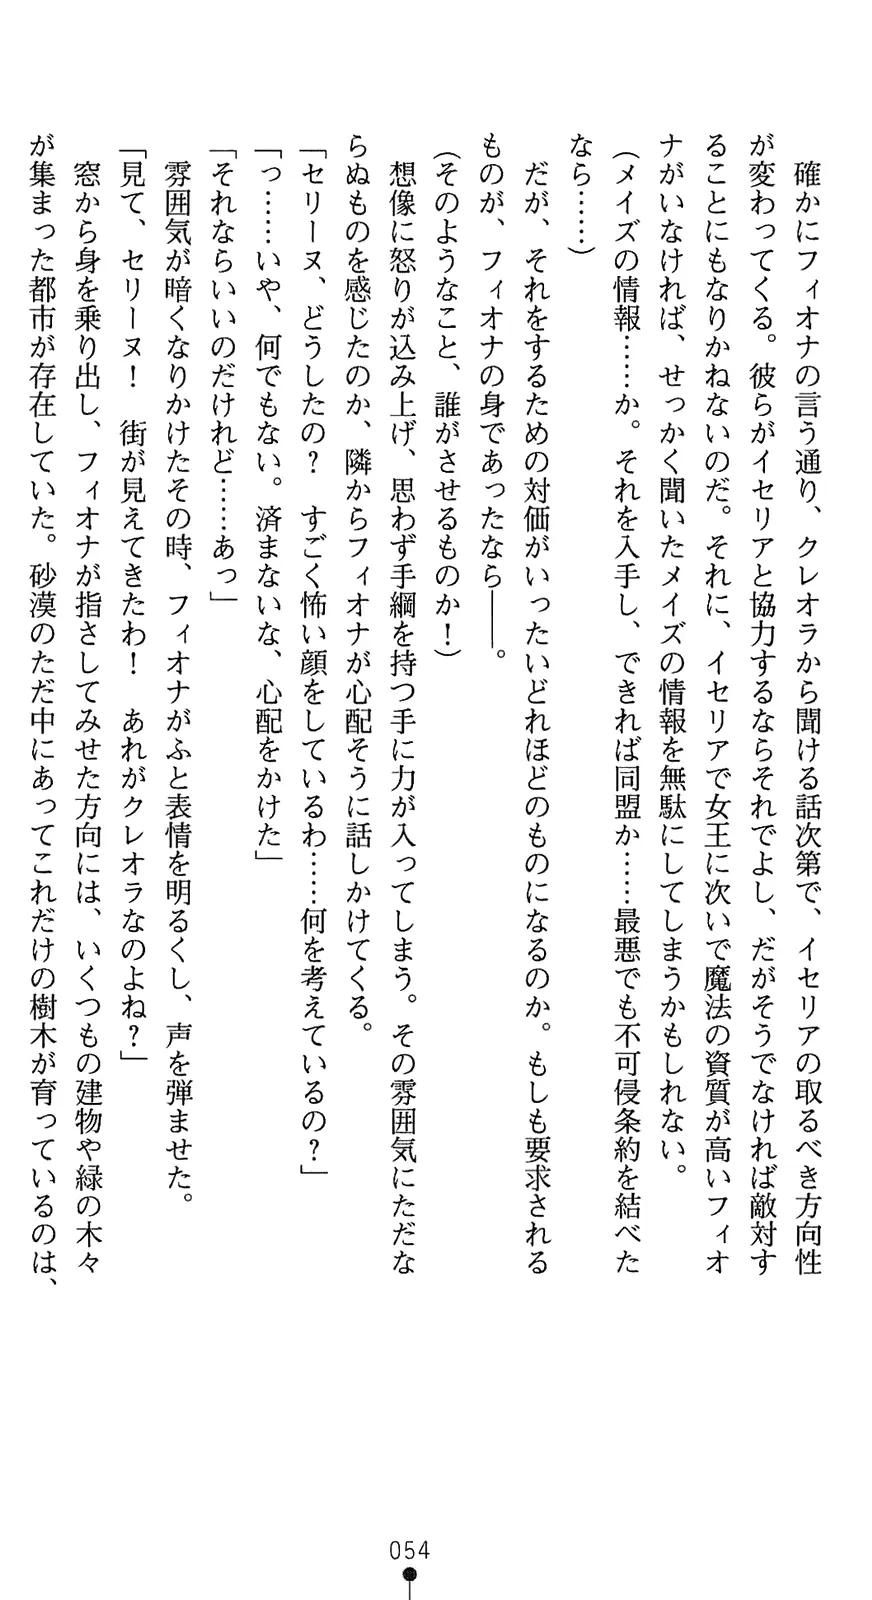 確かにフィオナの言う通り、クレオラから聞ける話次第で、イセリアの取るべき方向性
が変わってくる。彼らがイセリアと協力するならそれでよし、だがそうでなければ敵対す
ることにもなりかねないのだ。それに、イセリアで女王に次いで魔法の資質が高いフィオ
ナがいなければ、せっかく聞いたメイズの情報を無駄にしてしまうかもしれない。
（メイズの情報……か。それを入手し、できれば同盟か……最悪でも不可侵条約を結べた
なら……）
　だが、それをするための対価がいったいどれほどのものになるのか。もしも要求される
ものが、フィオナの身であったなら――。
（そのようなこと、誰がさせるものか！）
　想像に怒りが込み上げ、思わず手綱を持つ手に力が入ってしまう。その雰囲気にただな
らぬものを感じたのか、隣からフィオナが心配そうに話しかけてくる。
「セリーヌ、どうしたの？　すごく怖い顔をしているわ……何を考えているの？」
「っ……いや、何でもない。済まないな、心配をかけた」
「それならいいのだけれど……あっ」
　雰囲気が暗くなりかけたその時、フィオナがふと表情を明るくし、声を弾ませた。
「見て、セリーヌ！　街が見えてきたわ！　あれがクレオラなのよね？」
　窓から身を乗り出し、フィオナが指さしてみせた方向には、いくつもの建物や緑の木々
が集まった都市が存在していた。砂漠のただ中にあってこれだけの樹木が育っているのは、
054